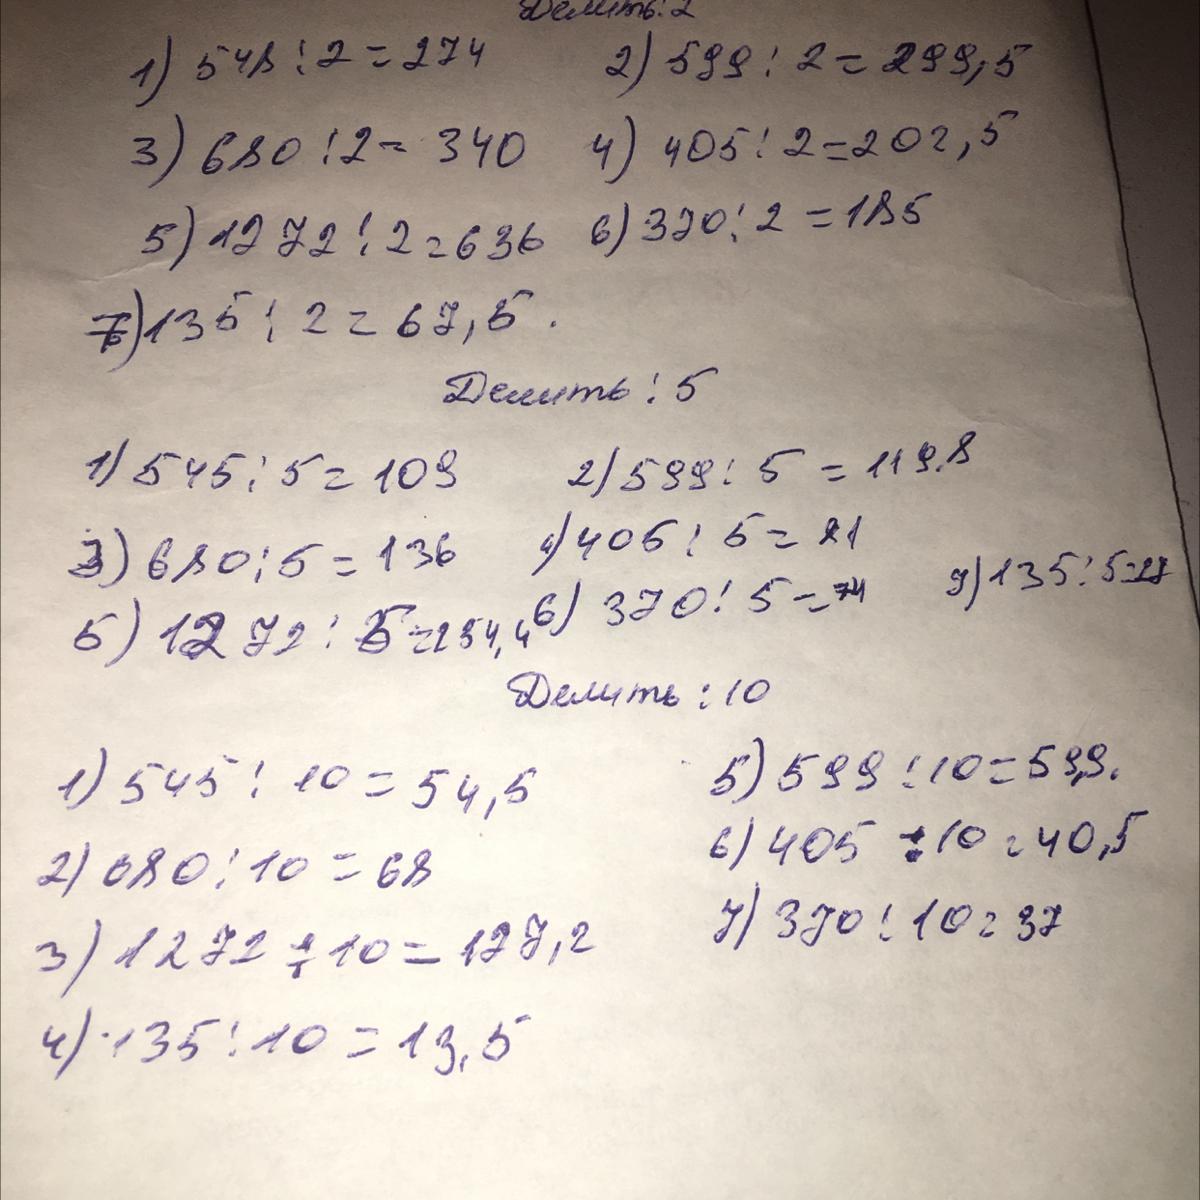 Делить: 2
1) 548 : 2 = 274 2) 599 : 2 = 299,5
3) 680 : 2 = 340 4) 405 : 2 = 202,5
5) 1272 : 2 = 636 6) 370 : 2 = 185
7) 135 : 2 = 67,5.
Делить : 5
1) 545 : 5 = 109 2) 599 : 5 = 119.8
3) 680 : 5 = 136 4) 405 : 5 = 81
5) 1272 : 5 = 254,4 6) 370 : 5 = 74 7) 135 : 5 = 27
Делить : 10
1) 545 : 10 = 54,5 5) 599 : 10 = 59,9.
2) 680 : 10 = 68 6) 405 : 10 = 40,5
3) 1272 : 10 = 127,2 7) 370 : 10 = 37
4) 135 : 10 = 13,5